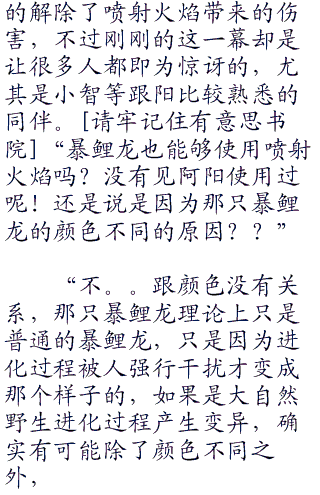 的解除了喷射火焰带来的伤
害，不过刚刚的这一幕却是
让很多人都即为惊讶的，尤
其是小智等跟阳比较熟悉的
同伴。[请牢记住有意思书
院]“暴鲤龙也能够使用喷射
火焰吗？没有见阿阳使用过
呢！还是说是因为那只暴鲤
龙的颜色不同的原因？？”
“不。。跟颜色没有关
系，那只暴鲤龙理论上只是
普通的暴鲤龙，只是因为进
化过程被人强行干扰才变成
那个样子的，如果是大自然
野生进化过程产生变异，确
实有可能除了颜色不同之
外，